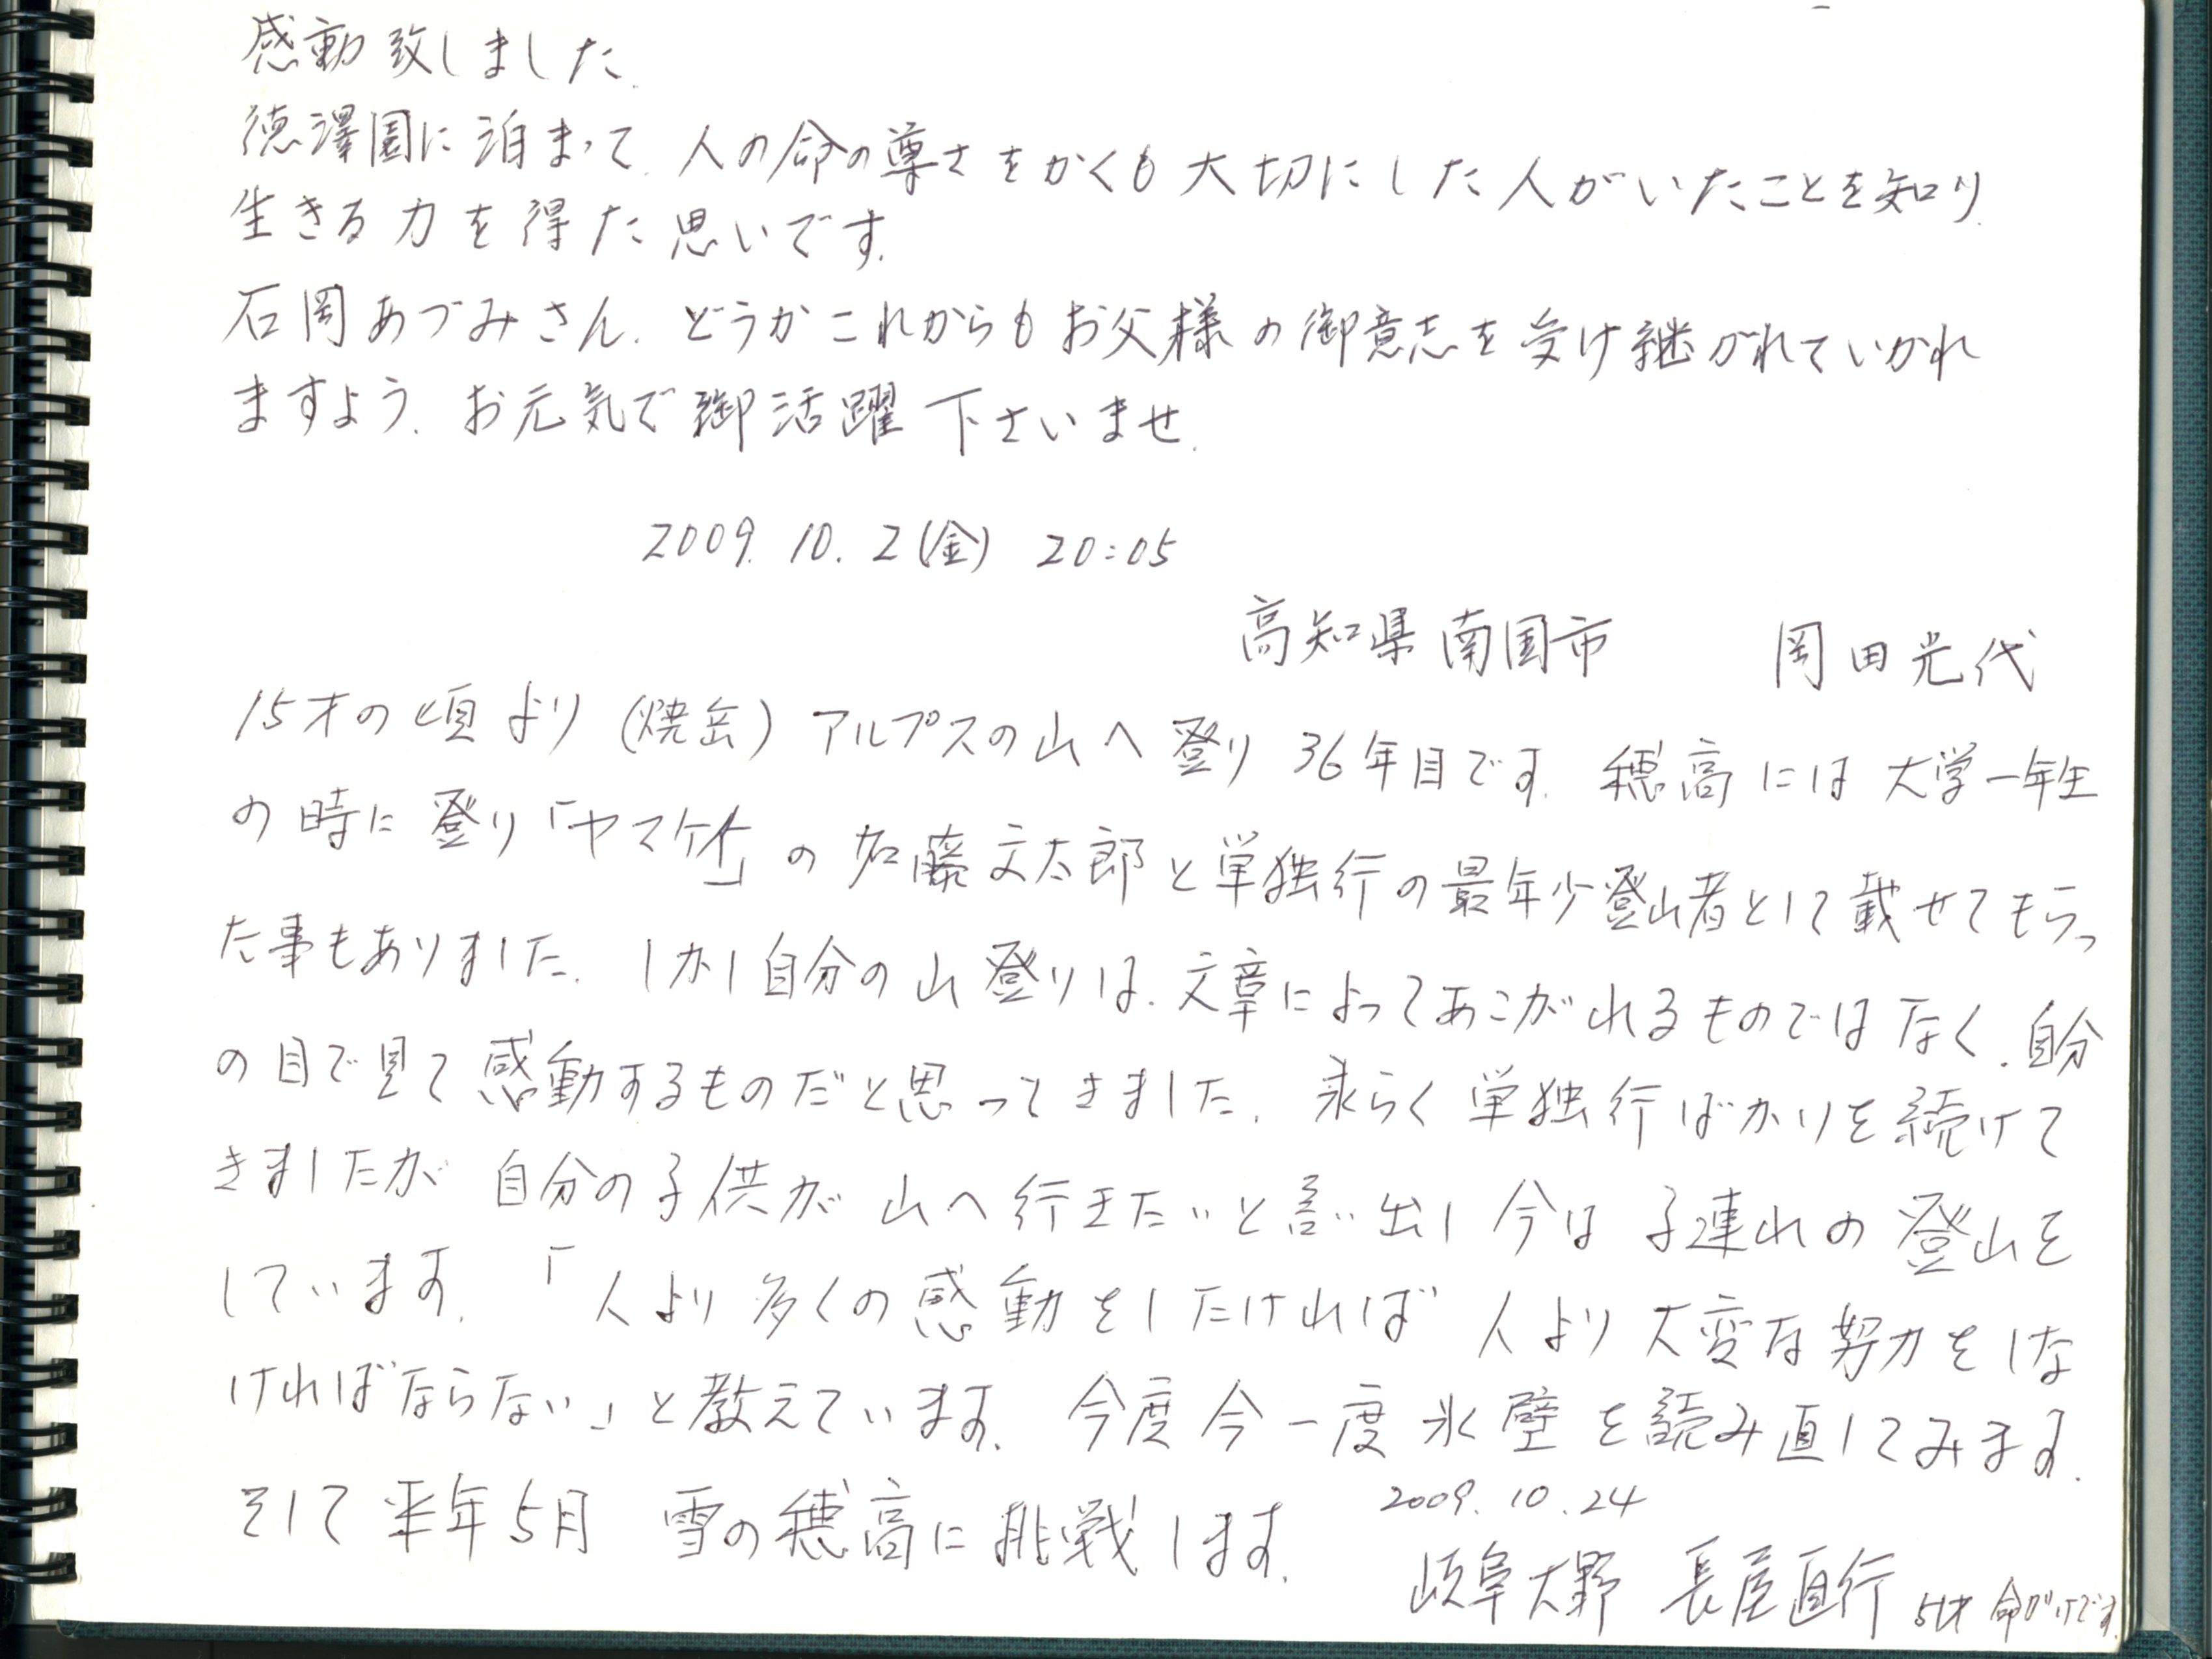 感動致しました.
徳澤園に泊まって、人の命の尊さをかくも大切にした人がいたことを知り.
生きる力を得た思いです.
石岡あづみさん. どうかこれからもお父様の御意志を受け継がれていかれ
ますよう. お元気で御活躍下さいませ.
2009. 10. 2(金) 20:05
高知県南国市 岡田光代
15才の頃より(焼岳)アルプスの山へ登り36年目です. 穂高には大学一年生
の時に登り「ヤマケイ」の加藤文太郎と単独行の最年少登山者として載せてもらっ
た事もありました. しかし自分の山登りは. 文章によってあこがれるものではなく. 自分
の目で見て感動するものだと思ってきました. 永らく単独行ばかりを続けて
きましたが 自分の子供が山へ行きたいと言い出し 今は子連れの登山を
しています. 「人より多くの感動をしたければ 人より大変な努力をしな
ければならない」と教えています. 今度今一度氷壁を読み直してみます.
そして来年5月 雪の穂高に挑戦します.
2009. 10. 24
岐阜大野 長屋直行 51才 命がけです.